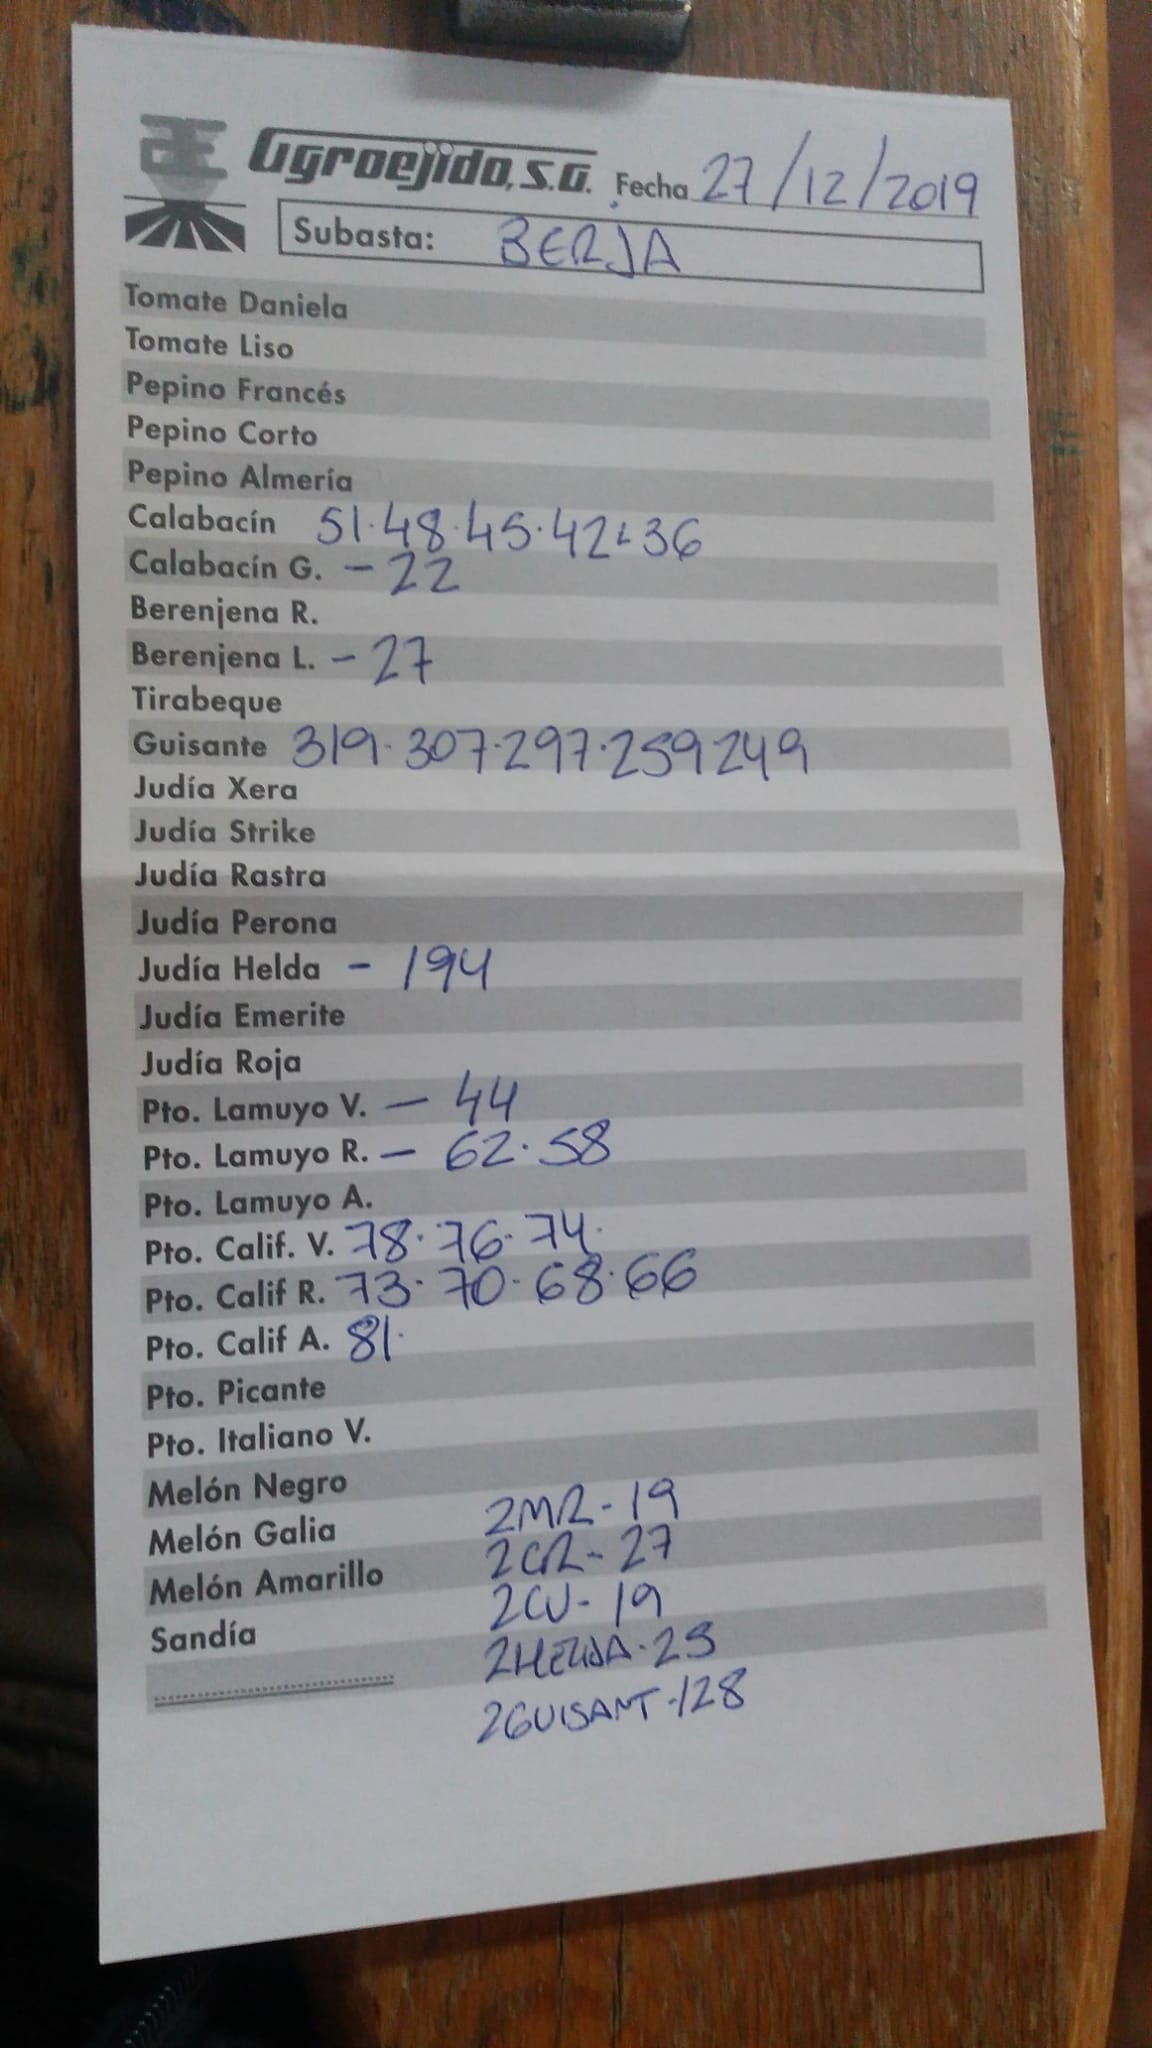 Agroejido, S.A. Fecha 27/12/2019
Subasta: BERJA
Tomate Daniela
Tomate Liso
Pepino Francés
Pepino Corto
Pepino Almería
Calabacín 51·48·45·42·36
Calabacín G. - 22
Berenjena R.
Berenjena L. - 27
Tirabeque
Guisante 319·307·297·259·249
Judía Xera
Judía Strike
Judía Rastra
Judía Perona
Judía Helda - 194
Judía Emerite
Judía Roja
Pto. Lamuyo V. - 44
Pto. Lamuyo R. - 62·58
Pto. Lamuyo A.
Pto. Calif. V. 78·76·74·
Pto. Calif R. 73·70·68·66
Pto. Calif A. 81·
Pto. Picante
Pto. Italiano V.
Melón Negro
Melón Galia 2MR-19
Melón Amarillo 2CR-27
Sandía 2CV-19
2HELDA·25
2GUISANT-128